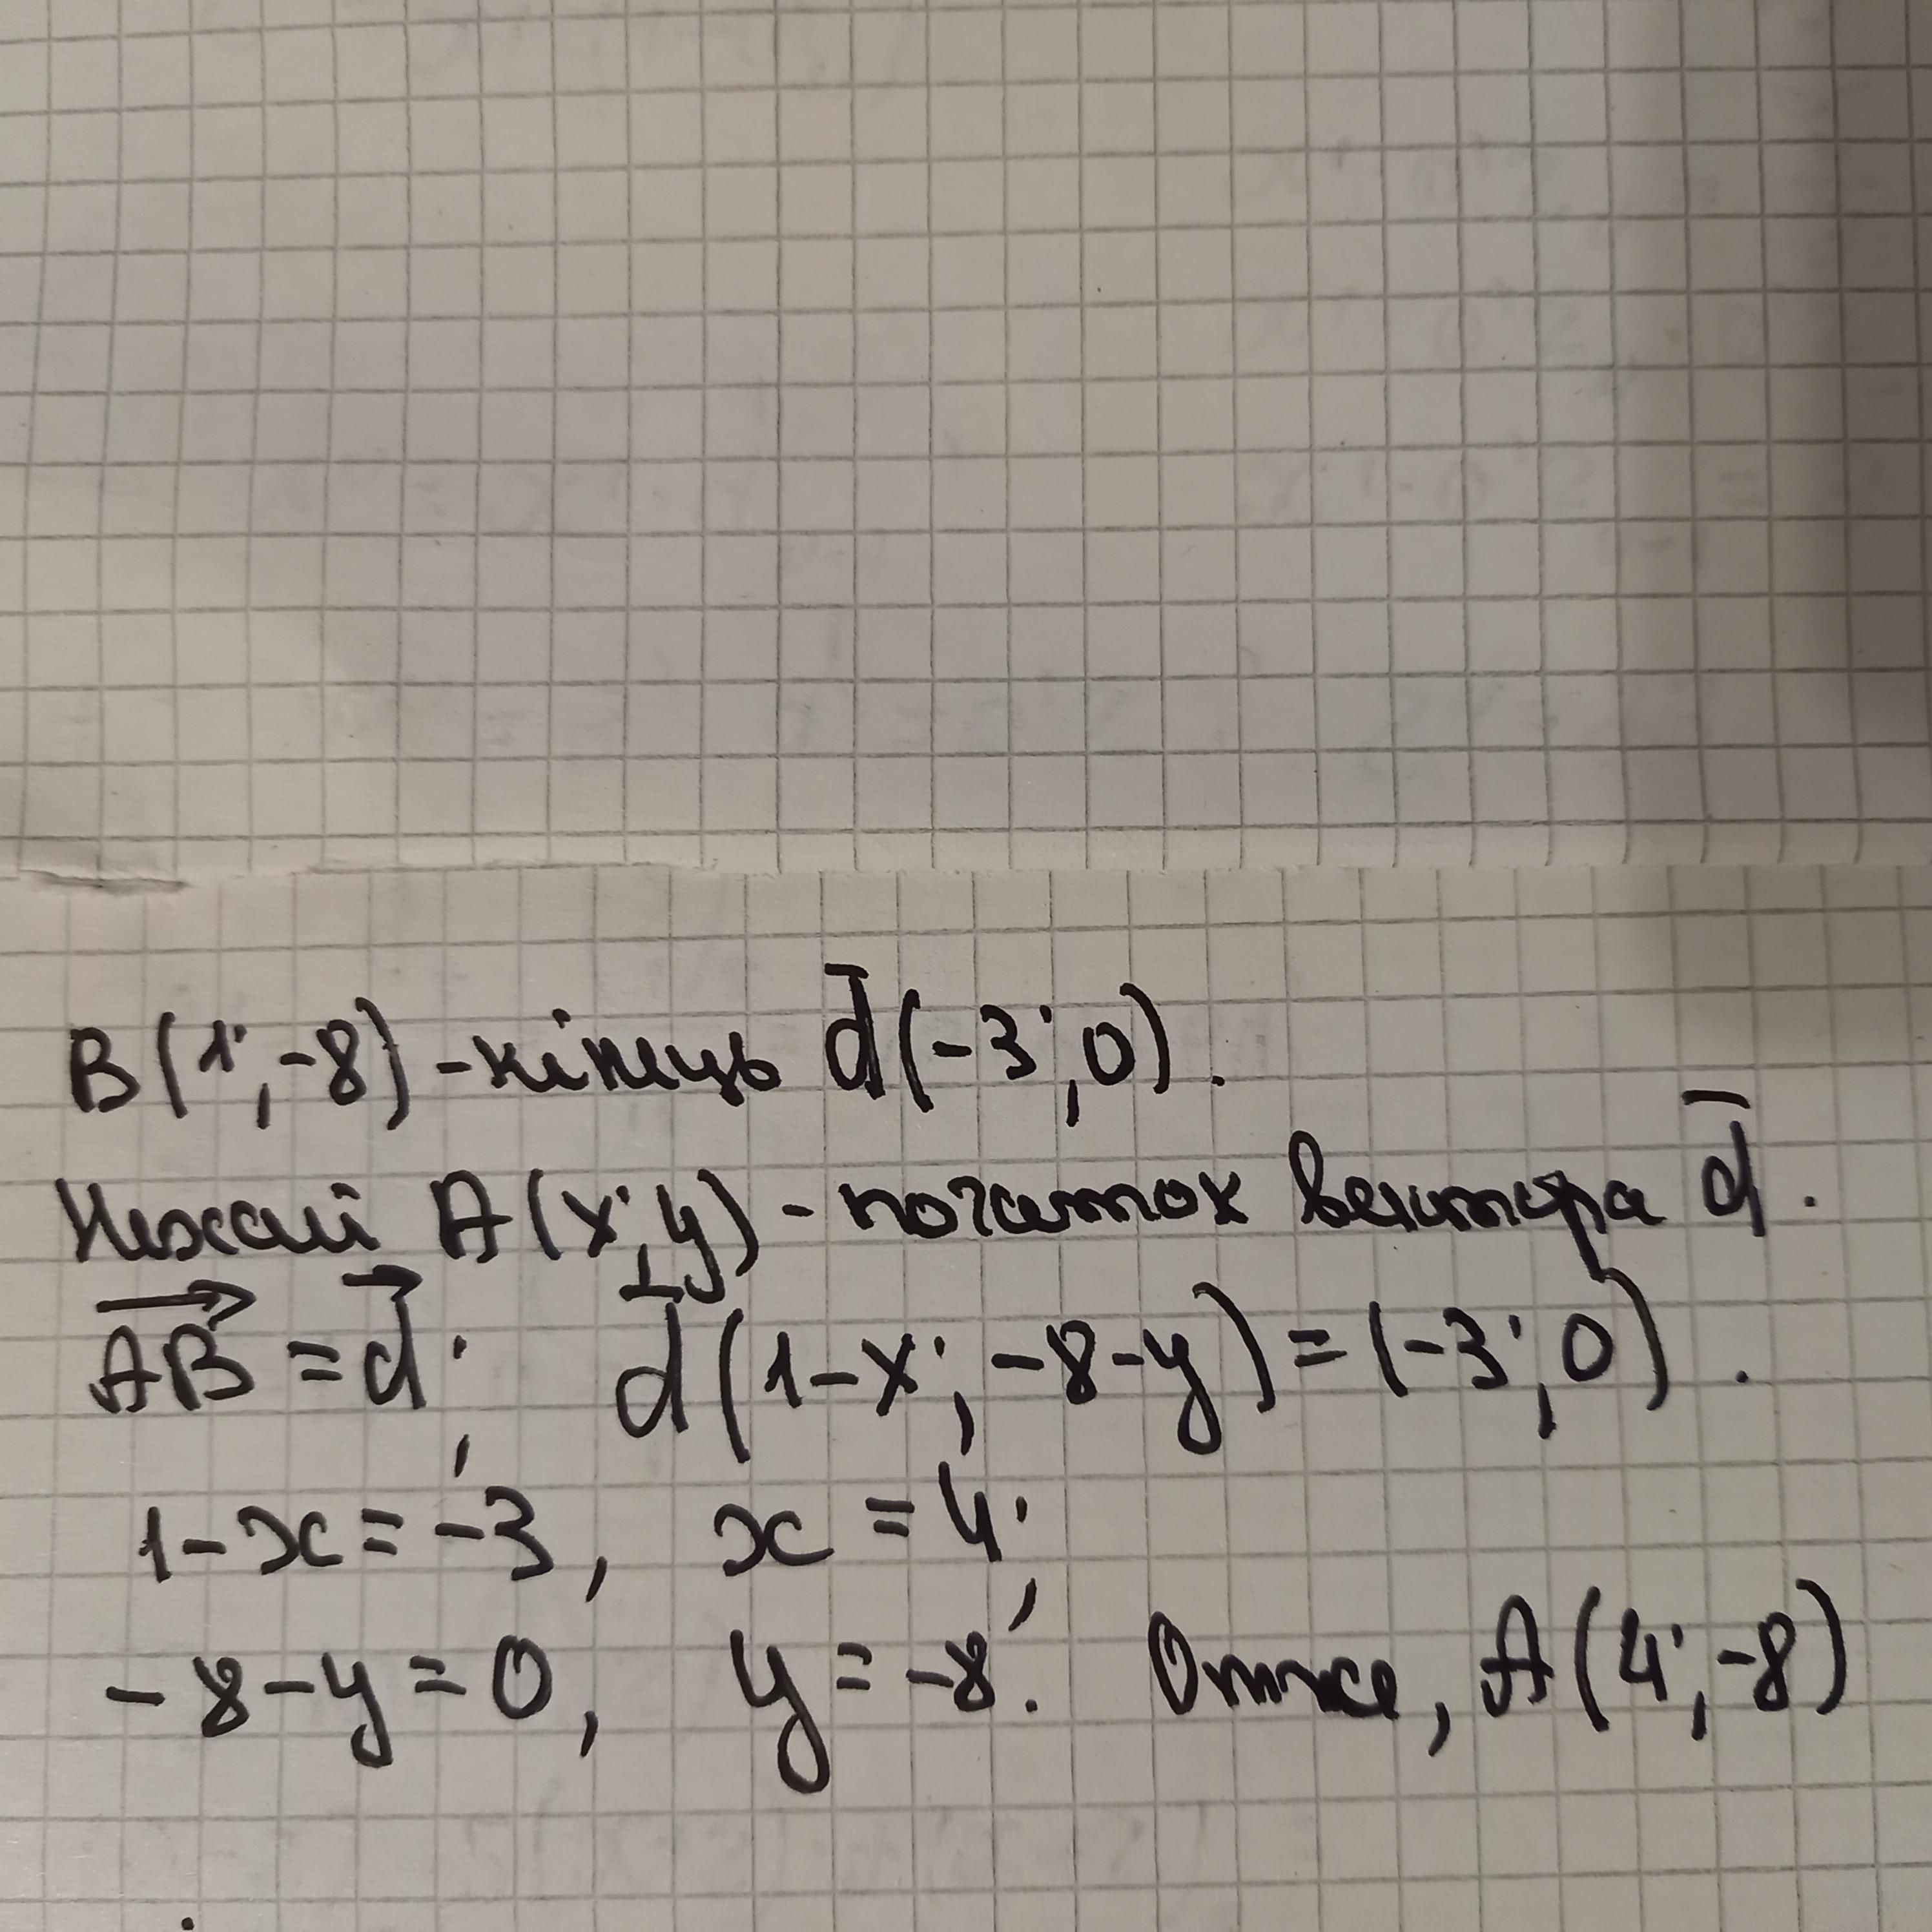 B(1; -8) - кінець d̅(-3; 0).
Нехай A(x; y) - початок вектора d̅.
A⃗B⃗ = d⃗; d̅(1-x; -8-y) = (-3; 0).
1-x = -3, x = 4;
-8-y = 0, y = -8. Отже, A(4; -8)